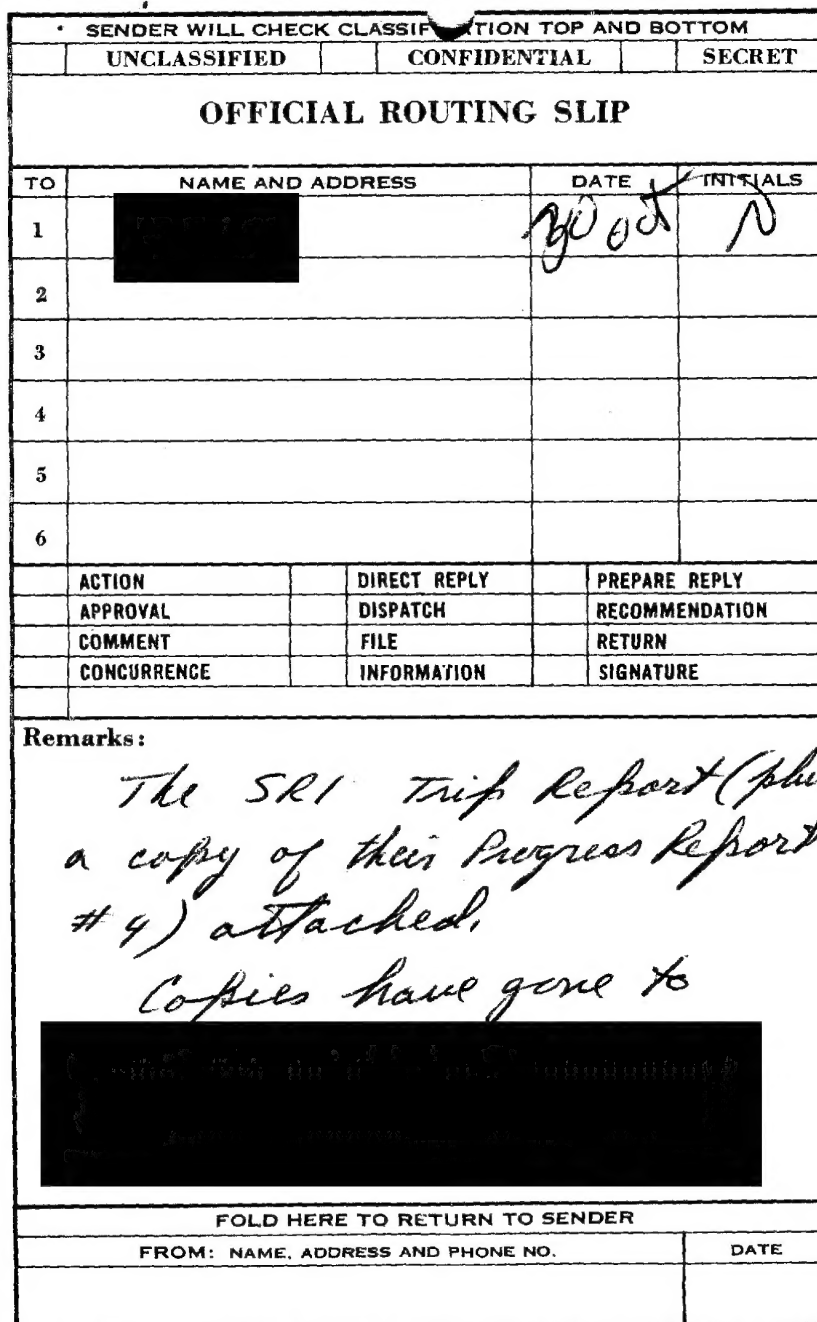 SENDER WILL CHECK CLASSIF TION TOP AND BOTTOM
UNCLASSIFIED CONFIDENTIAL SECRET
OFFICIAL ROUTING SLIP
TO NAME AND ADDRESS DATE INITIALS
1
2
3
4
5
6
ACTION DIRECT REPLY PREPARE REPLY
APPROVAL DISPATCH RECOMMENDATION
COMMENT FILE RETURN
CONCURRENCE INFORMATION SIGNATURE
Remarks:
The SRI Trip Report (plu
a copy of their Progress Report
#4) attached.
Copies have gone to
FOLD HERE TO RETURN TO SENDER
FROM: NAME, ADDRESS AND PHONE NO. DATE